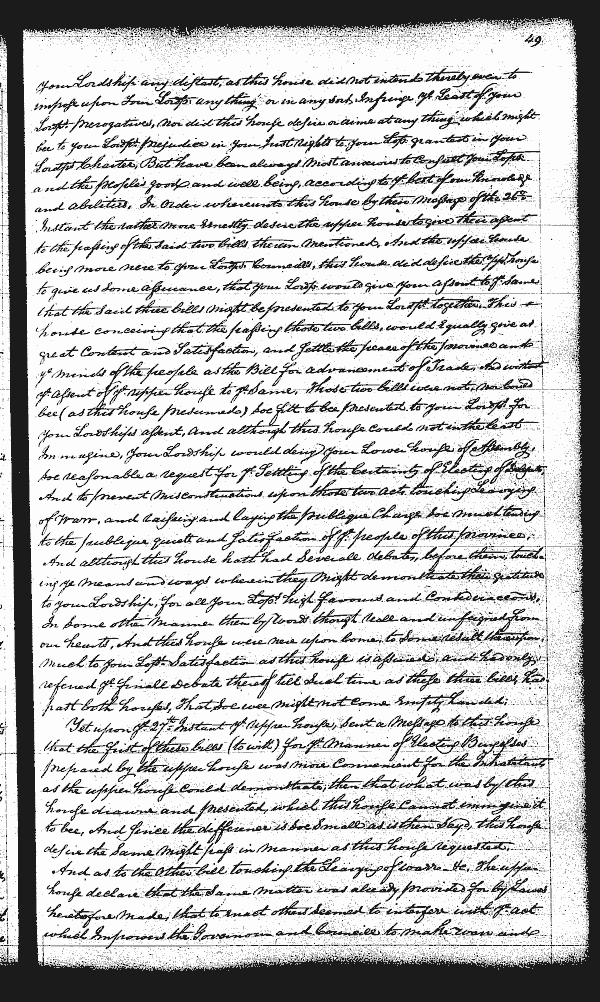 49
Your Lordship any distast, as this house did not intend thereby even to
impose upon Your Lordsps any thing or in any sort Infringe ye Least of your
Lordsps Prerogatives, nor did this house desire or aime at any thing which might
bee to your Lordsps prejudice in your Just rights to your Losp granted in your
Lordsps Charter, But have been always most anxious to Consult Your Losps
and the people's good and well being, according to ye best of our Knowledge
and abilities, In Order whereunto this house by their Message of the 26th
Instant the rather more Ernestly desire the upper house to give their assent
to the passing of the said two bills therein Mentioned, And the upper house
being more nere to your Lordsps Councills, this house did desire the upp: house
to give us Some assurance, that your Lordsp would give your assent to ye Same
that the said three bills might be presented to your Lordsp together. This
house conceiving that the passing those two bills, would Equally give as
great Content and Satisfaction, and Settle the peace of the province and
ye minds of the people as the Bill for advancement of Trade. And without
ye assent of ye upper house to ye Same. Those two bills were not, nor could
bee (as this house presumed) soe fitt to bee presented to your Lordsp for
your Lordships assent, And although this house could not in the least
Immagine, your Lordship would deny your Lower house of Assembly
soe reasonable a request for ye Settling of the Certainty of Electing of Delegates
And to prevent Misconstructions upon those two acts touching Leavying
of Warr, and raiseing and laying the publique Charge soe much tending
to the publique quiett and Satisfaction of ye people of this province,
And although this house hath had Severall debates, before them, touch-
ing ye means and ways wherein they Might demonstrate their gratitude
to your Lordship, for all your Losps high favours and Condescensions,
In some other Manner then by words though reall and unfeigned from
our hearts, And this house were nere upon come, to Some result thereupon,
much to your Losps Satisfaction as this house is assured, and had only
referred ye finall Debate thereof till Such time as these three bills had
past both houses, That Soe wee might not come Empty handed;
Yet upon ye 27th Instant ye upper house, sent a Message to this house
that the first of these bills (to witt) for ye Manner of Electing Burgesses
prepared by the upper house was more Convenient for the Inhabitants
as the upper house could demonstrate, then that what was by this
house drawne and presented, which this house cannot immagine it
to bee, And Since the difference is soe Small as is then Sayd, this house
desire the Same might pass in manner as this house requested,
And as to the Other bill touching the Leavying of warr &c. The upper
house declare that the Same Matter was already provided for by Laws
heretofore Made, that to enact others Seemed to interfere with ye act
which Impowers the Governour and Councill to make warr and